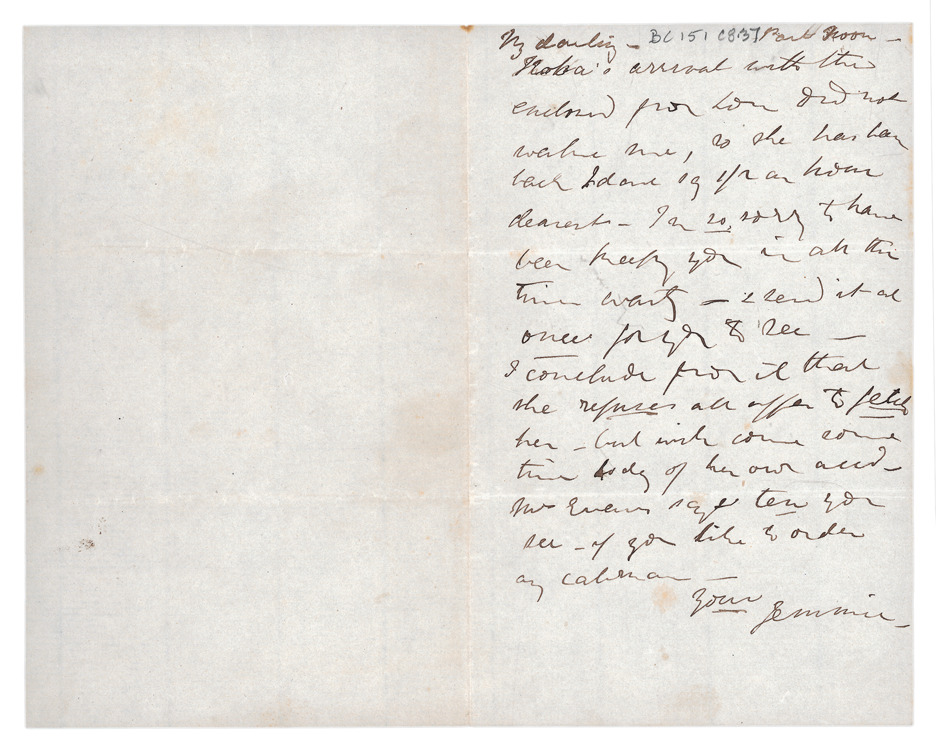 My darling - BC 151 C837 Past Noon -
arrival with the
enclosed from Lou did not
wake me, so she has been
back I dare say 1/2 an hour
dearest - I'm so sorry to have
been keeping you in all this
time waiting - I send it at
once for you to see -
I conclude from it that
she refuses all offer to fetch
her - but will come some
time today of her own accd -
Mrs Evans says ten you
see - if you like to order
any cabman -
Your Jemmie -